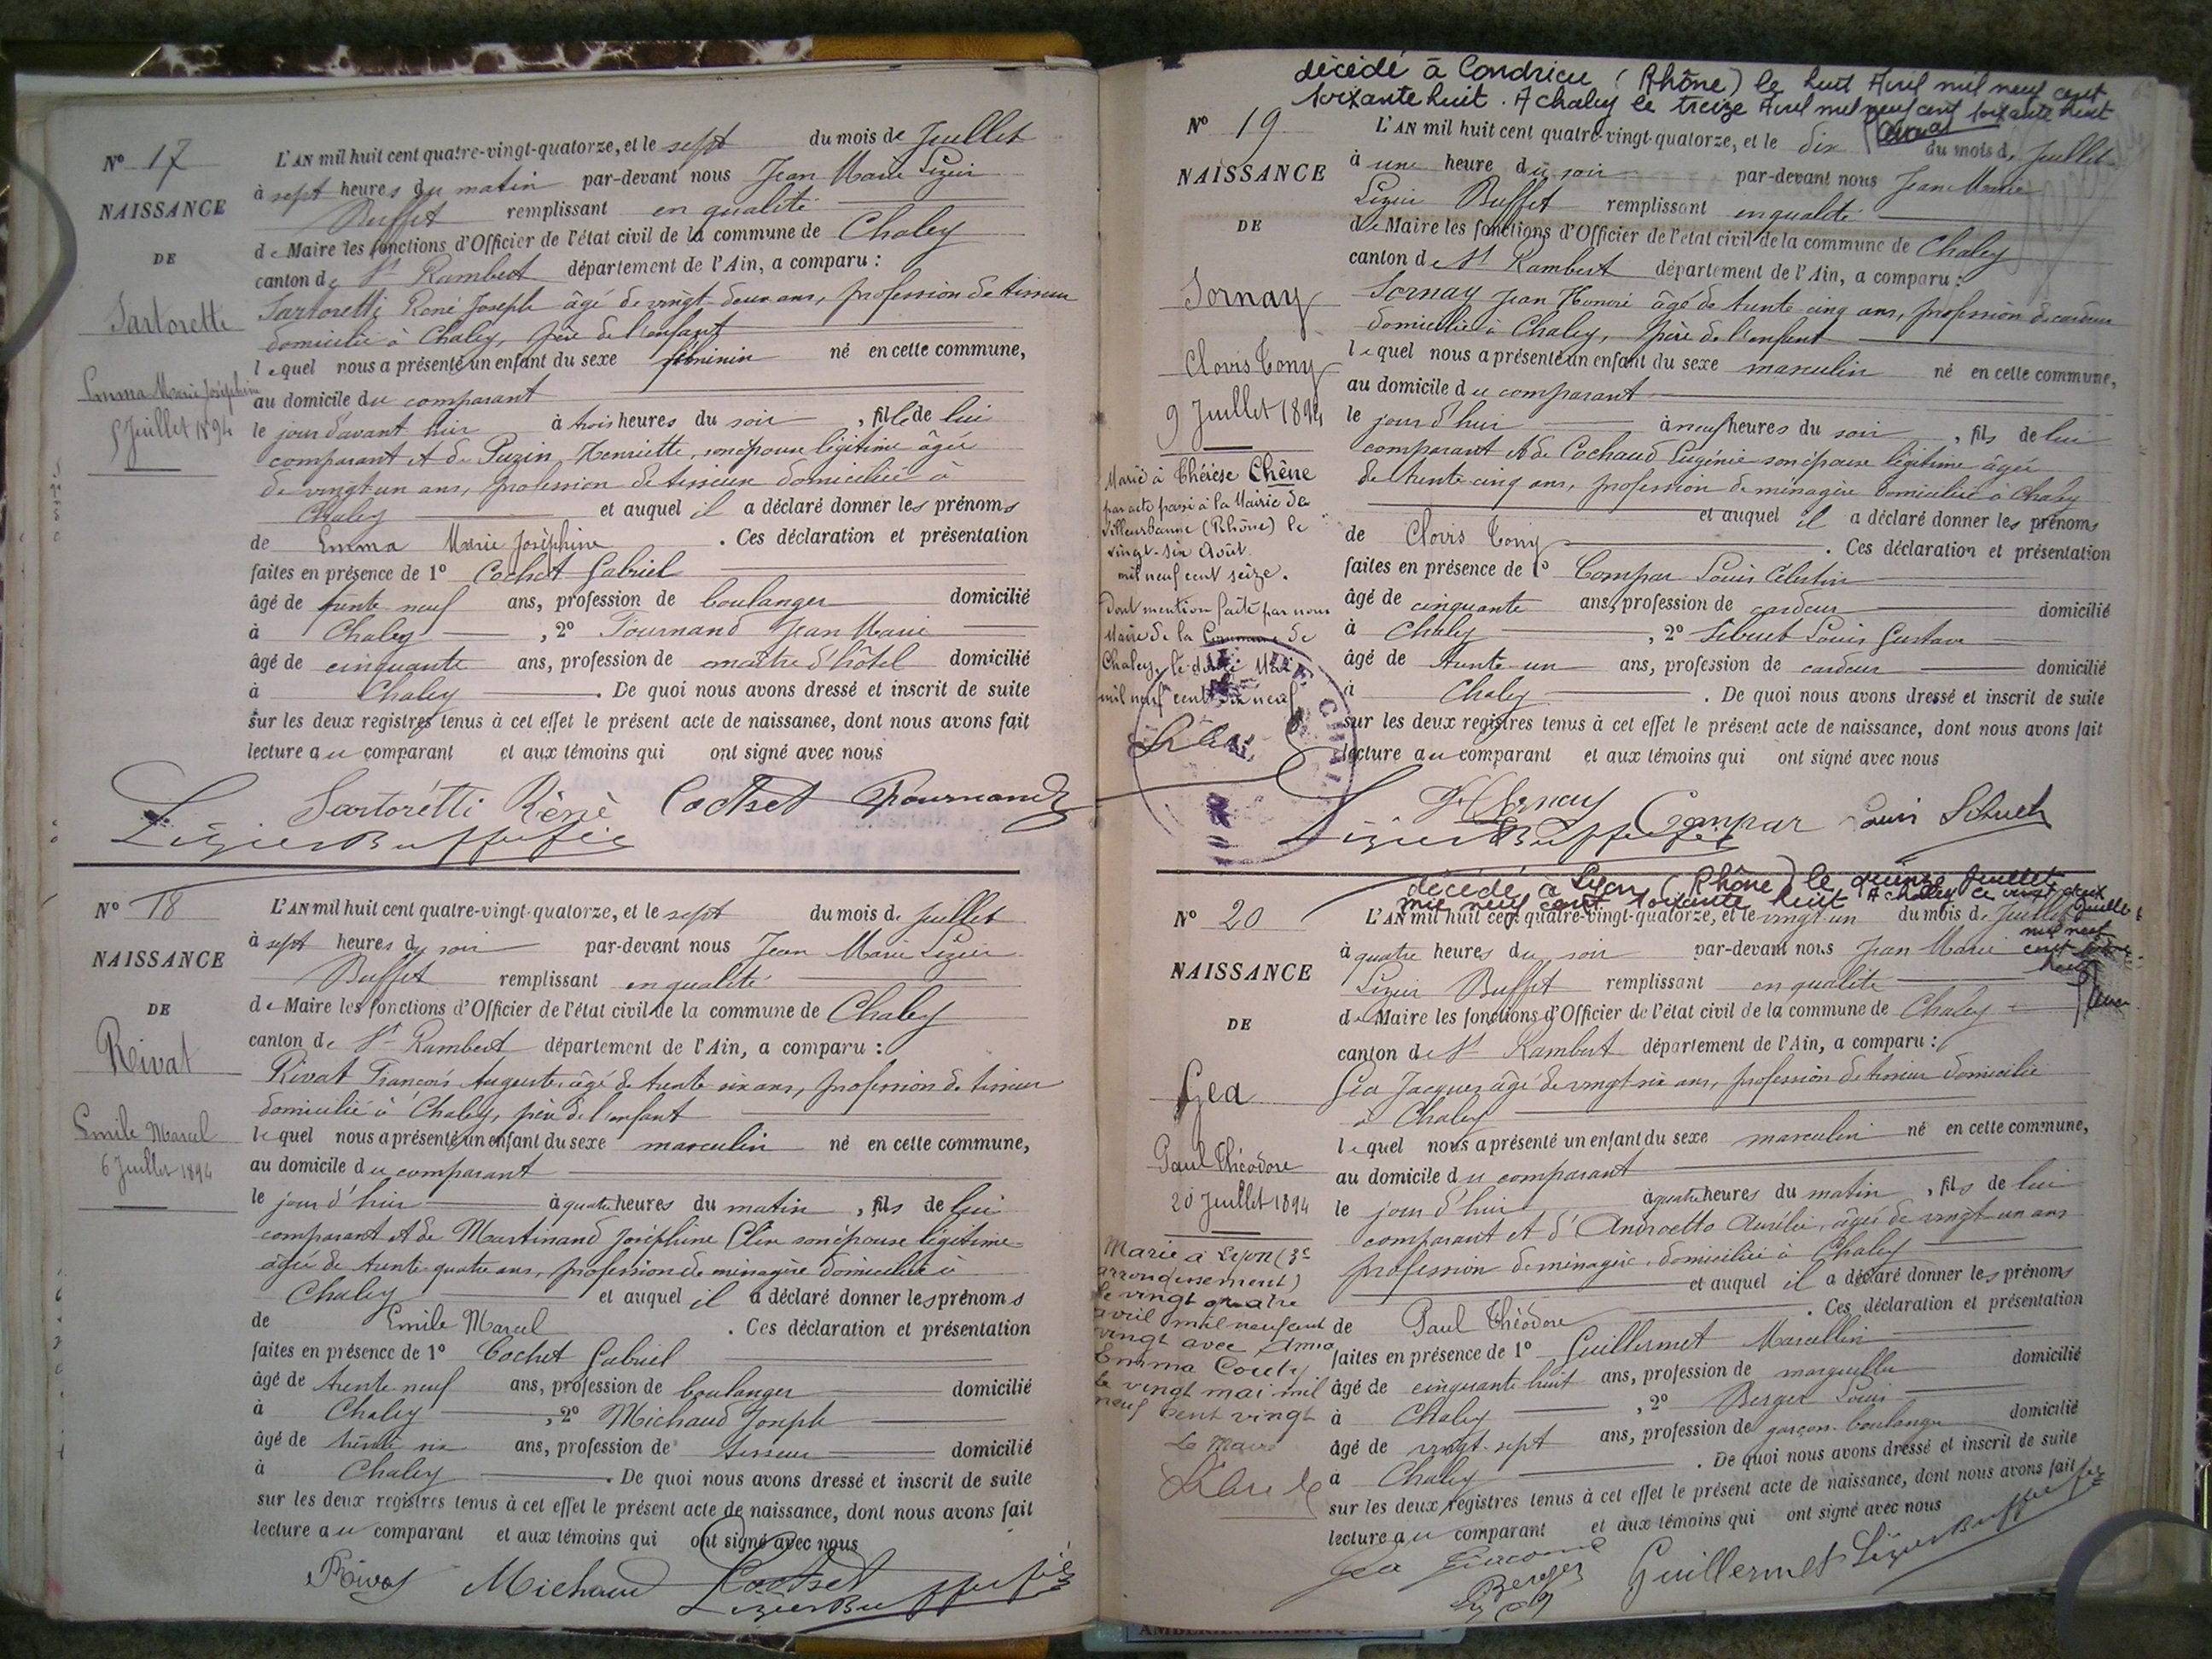 N° 17
NAISSANCE
DE
Sartoretti
Emma Marie Joséphine
5 Juillet 1894
L'AN mil huit cent quatre-vingt-quatorze, et le sept du mois de Juillet
à sept heures du matin par-devant nous Jean Marie Lizier
Buffet remplissant en qualité
de Maire les fonctions d'Officier de l'état civil de la commune de Chaley
canton de St Rambert département de l'Ain, a comparu :
Sartoretti René Joseph âgé de vingt deux ans, profession de tisseur
domicilié à Chaley, père de l'enfant
lequel nous a présenté un enfant du sexe féminin né en cette commune,
au domicile du comparant
le jour d'avant hier à trois heures du soir, fille de lui
comparant et de Puzin Henriette, son épouse légitime âgée
de vingt-un ans, profession de tisseur domiciliée à
Chaley et auquel il a déclaré donner les prénoms
de Emma Marie Joséphine. Ces déclaration et présentation
faites en présence de 1° Cochet Gabriel
âgé de trente neuf ans, profession de boulanger domicilié
à Chaley, 2° Tournand Jean Marie
âgé de cinquante ans, profession de maître d'hôtel domicilié
à Chaley. De quoi nous avons dressé et inscrit de suite
sur les deux registres tenus à cet effet le présent acte de naissance, dont nous avons fait
lecture au comparant et aux témoins qui ont signé avec nous
Sartorétti Réné Cochet Tournand
Lizier Buffet
N° 18
NAISSANCE
DE
Rivat
Emile Marcel
6 Juillet 1894
L'AN mil huit cent quatre-vingt-quatorze, et le sept du mois de Juillet
à sept heures du soir par-devant nous Jean Marie Lizier
Buffet remplissant en qualité
de Maire les fonctions d'Officier de l'état civil de la commune de Chaley
canton de St Rambert département de l'Ain, a comparu :
Rivat François Auguste, âgé de trente six ans, profession de tisseur
domicilié à Chaley, père de l'enfant
lequel nous a présenté un enfant du sexe masculin né en cette commune,
au domicile du comparant
le jour d'hier à quatre heures du matin, fils de lui
comparant et de Martinand Joséphine son épouse légitime
âgée de trente quatre ans, profession de ménagère domiciliée à
Chaley et auquel il a déclaré donner les prénoms
de Emile Marcel. Ces déclaration et présentation
faites en présence de 1° Cochet Gabriel
âgé de trente neuf ans, profession de boulanger domicilié
à Chaley, 2° Michaud Joseph
âgé de trente six ans, profession de tisseur domicilié
à Chaley. De quoi nous avons dressé et inscrit de suite
sur les deux registres tenus à cet effet le présent acte de naissance, dont nous avons fait
lecture au comparant et aux témoins qui ont signé avec nous
Rivat Michaud Cochet
Lizier Buffet
décédé à Condrieu (Rhône) le huit Avril mil neuf cent
soixante huit. A chaley le treize Avril mil neuf cent soixante huit
N° 19
NAISSANCE
DE
Sornay
Clovis Tony
9 Juillet 1894
Marié à Thérèse Chêne
par acte passé à la Mairie de
Villeurbanne (Rhône) le
vingt-six Août
mil neuf cent seize.
Dont mention faite par nous
Maire de la Commune de
Chaley, le Mai
mil neuf cent dix neuf
L'AN mil huit cent quatre-vingt-quatorze, et le dix du mois de Juillet
à une heure du soir par-devant nous Jean Marie
Lizier Buffet remplissant en qualité
de Maire les fonctions d'Officier de l'état civil de la commune de Chaley
canton de St Rambert département de l'Ain, a comparu :
Sornay Jean Honoré âgé de trente cinq ans, profession de cardeur
domicilié à Chaley, père de l'enfant
lequel nous a présenté un enfant du sexe masculin né en cette commune,
au domicile du comparant
le jour d'hier à neuf heures du soir, fils de lui
comparant et de Cochaud Eugénie son épouse légitime âgée
de trente cinq ans, profession de ménagère domiciliée à Chaley
et auquel il a déclaré donner les prénoms
de Clovis Tony. Ces déclaration et présentation
faites en présence de 1° Compar Louis Célestin
âgé de cinquante ans, profession de cardeur domicilié
à Chaley, 2° Louis Gustave
âgé de trente un ans, profession de cardeur domicilié
à Chaley. De quoi nous avons dressé et inscrit de suite
sur les deux registres tenus à cet effet le présent acte de naissance, dont nous avons fait
lecture au comparant et aux témoins qui ont signé avec nous
Sornay Compar Louis
Lizier Buffet
décédé à Lyon (Rhône) le quinze Juillet
mil neuf cent soixante huit A chaley le vingt deux
Juillet
mil neuf
cent soixante
huit
N° 20
NAISSANCE
DE
Gea
Paul Théodore
20 Juillet 1894
Marié à Lyon (3e
arrondissement)
le vingt quatre
avril mil neuf cent
vingt avec Anna
Emma Couty
le vingt mai mil
neuf cent vingt
Le Maire
L'AN mil huit cent quatre-vingt-quatorze, et le vingt-un du mois de Juillet
à quatre heures du soir par-devant nous Jean Marie
Lizier Buffet remplissant en qualité
de Maire les fonctions d'Officier de l'état civil de la commune de Chaley
canton de St Rambert département de l'Ain, a comparu :
Gea Jacques âgé de vingt six ans, profession de tisseur domicilié
à Chaley
lequel nous a présenté un enfant du sexe masculin né en cette commune,
au domicile du comparant
le jour d'hier à quatre heures du matin, fils de lui
comparant et d'Androetto Aurélie, âgée de vingt-un ans
profession de ménagère, domiciliée à Chaley
et auquel il a déclaré donner les prénoms
de Paul Théodore. Ces déclaration et présentation
faites en présence de 1° Guillermet Marcellin
âgé de cinquante huit ans, profession de marguillier domicilié
à Chaley, 2° Berger Louis
âgé de vingt-sept ans, profession de garçon boulanger domicilié
à Chaley. De quoi nous avons dressé et inscrit de suite
sur les deux registres tenus à cet effet le présent acte de naissance, dont nous avons fait
lecture au comparant et aux témoins qui ont signé avec nous
Gea Giacomo
Berger Guillermet Lizier Buffet